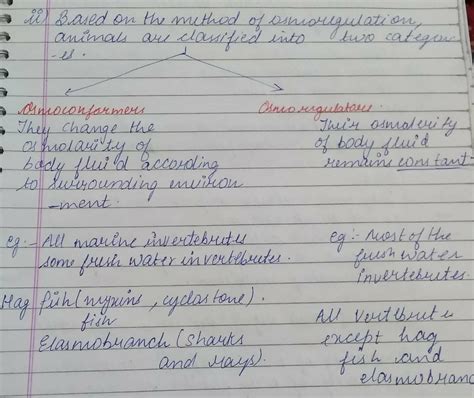 ii) Based on the method of osmoregulation,
animals are classified into two categor
-es.
Osmoconformers
They change the
osmolarity of
body fluid according
to surrounding environ
-ment.
eg:- All marine invertebrates
some fresh water invertebrates.
Hag fish (myxins, cyclostone).
fish
Elasmobranch (sharks
and rays).
Osmoregulators
Their osmolarity
of body fluid
remains constant
eg:- Most of the
fresh water
invertebrates
All vertebrate
except hag
fish and
elasmobranc